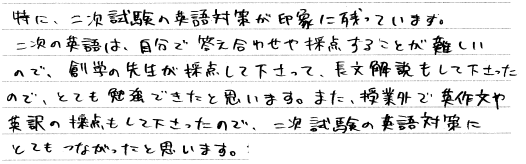 特に、二次試験の英語対策が印象に残っています。
二次の英語は、自分で答え合わせや採点することが難しい
ので、創学の先生が採点して下さって、長文解説もして下さった
ので、とても勉強できたと思います。また、授業外で英作文や
英訳の採点もして下さったので、二次試験の英語対策に
とてもつながったと思います。